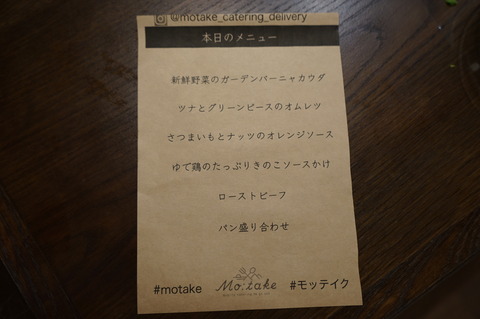 @motake_catering_delivery
本日のメニュー
新鮮野菜のガーデンバーニャカウダ
ツナとグリーンピースのオムレツ
さつまいもとナッツのオレンジソース
ゆで鶏のたっぷりきのこソースかけ
ローストビーフ
パン盛り合わせ
#motake Mo:take #モッテイク